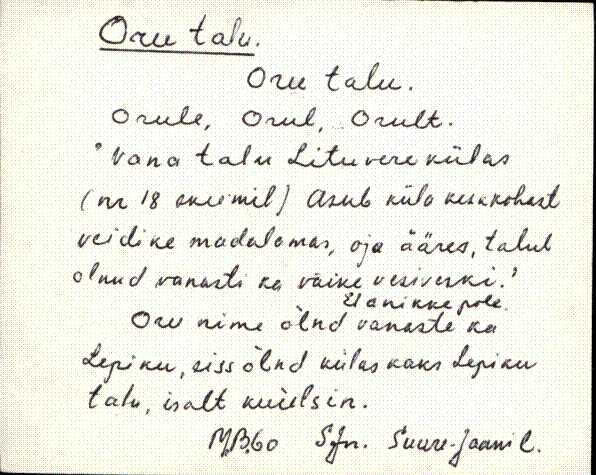 Oru talu.
Oru talu.
Orule, Orul, Orult.
"Vana talu Lituvere külas
(nr 18 skeemil) Asub küla keskkohast
veidike madalamas, oja ääres, talul
olnud vanasti ka väike vesiveski."
Elanikke pole.
Oru nime õlnd vanaste ka
Lepiku, siss õlnd külas kaks Lepiku
talu, isalt kuulsin.
M.B.60 Sjn. Suure-Jaani l.